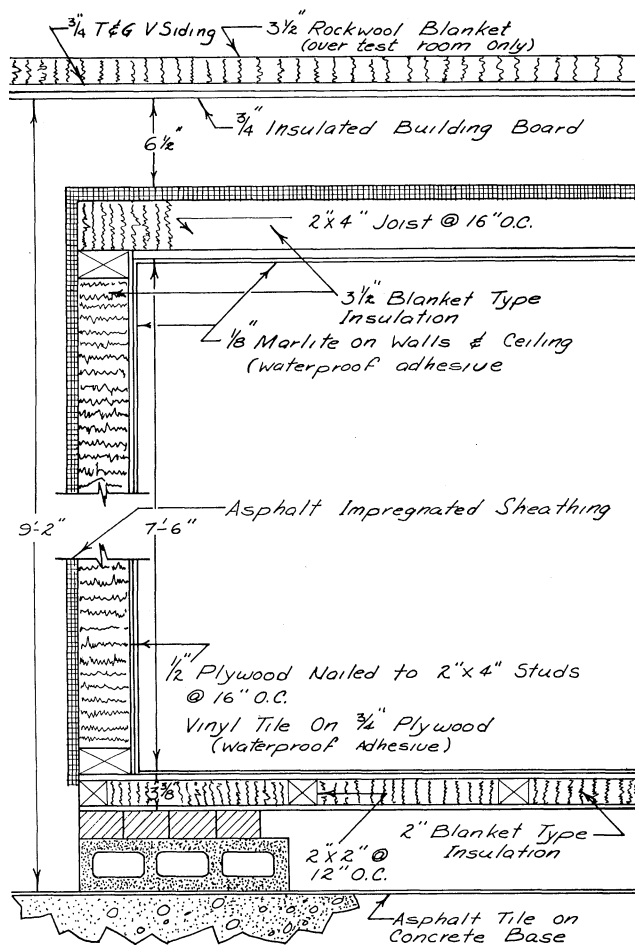 3/4" T&G V Siding
3 1/2" Rockwool Blanket
(over test room only)
3/4" Insulated Building Board
6 1/2"
2"x4" Joist @ 16" O.C.
3 1/2" Blanket Type
Insulation
1/8" Marlite on Walls & Ceiling
(waterproof adhesive
Asphalt Impregnated Sheathing
9'-2"
7'-6"
1/2" Plywood Nailed to 2"x4" Studs
@ 16" O.C.
Vinyl Tile On 3/4" Plywood
(Waterproof Adhesive)
2"x2" @
12" O.C.
2" Blanket Type
Insulation
Asphalt Tile on
Concrete Base